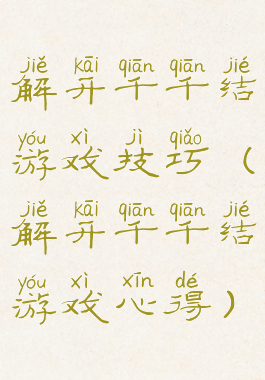 jiě kāi qiān qiān jié
解开千千结
yóu xì jì qiǎo
游戏技巧（
jiě kāi qiān qiān jié
解开千千结
yóu xì xīn dé
游戏心得）